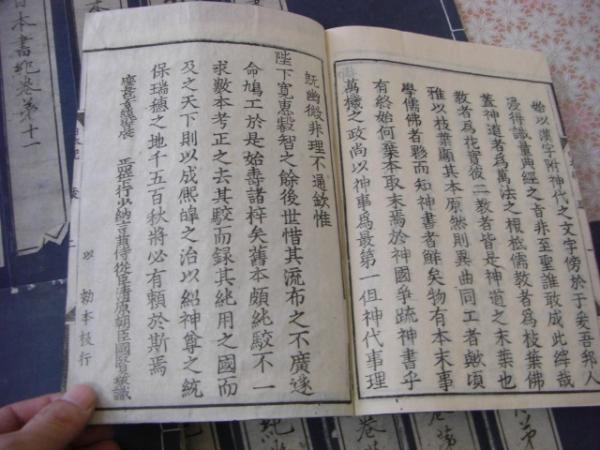 始以漢字附神代之文字傍於于爰吾邦人
得識量典經之旨非至聖誰敢成此哉
蓋神道者爲萬法之根柢儒教者爲枝葉佛
教者爲花實彼二教者皆是神道之末葉也
雖以枝葉顯其本原然則異曲同工者歟頃
學儒佛者夥而知神書者鮮矣物有本末事
有終始何棄本取末焉於神國爭疏神書乎
萬機之政尚以神事爲最第一但神代事理
既幽微非理不通欽惟
陛下寛惠叡智之餘後世惜其流布之不廣遂
命鳩工於是始壽諸梓矣舊本頗純駁不一
求數本考正之去其駁而録其純用之國而
及之天下則以成熙皞之治以紹神尊之統
保瑞穂之地千五百秋將必有頼於斯焉
慶長 正四位行少納言兼侍從臣清原朝臣國賢敬識
以 勅本板行
日本書紀卷第十一